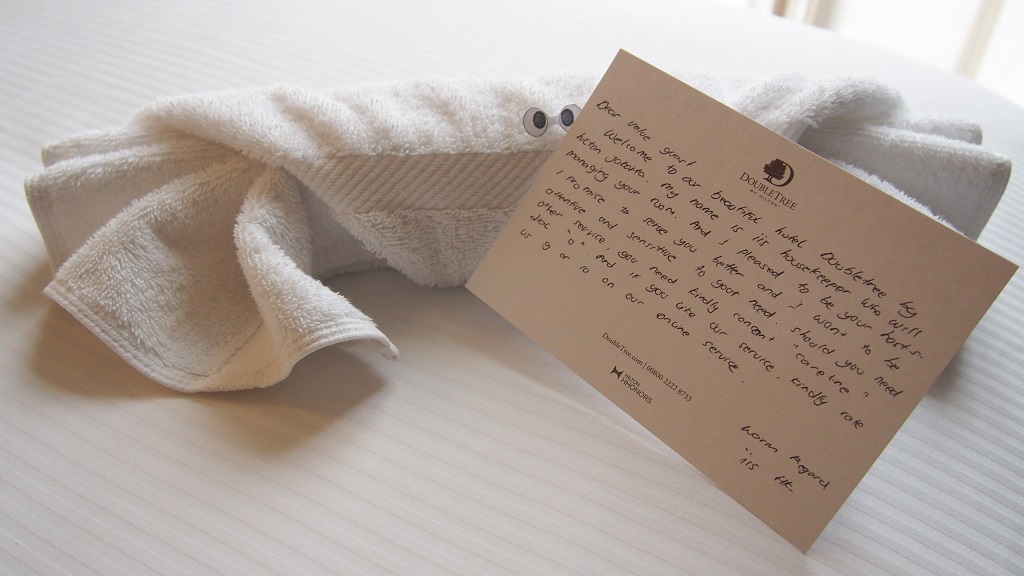 DOUBLETREE
BY HILTON
Dear value guest
Welcome to our beautiful hotel Doubletree by
hilton Jakarta. my name is iis housekeeper who will
managing your room. And I pleased to be your part's.
I promise to serve you better and I want to be
attentive and sensitive to your need. should you need
other service. you need kindly contact "careline"
click "0". And if you like our service, kindly rate
us 9 or 10 on our online service.
Warm Regard
iis HK-
DoubleTree.com | 00800 2222 8733
HILTON
HHONORS